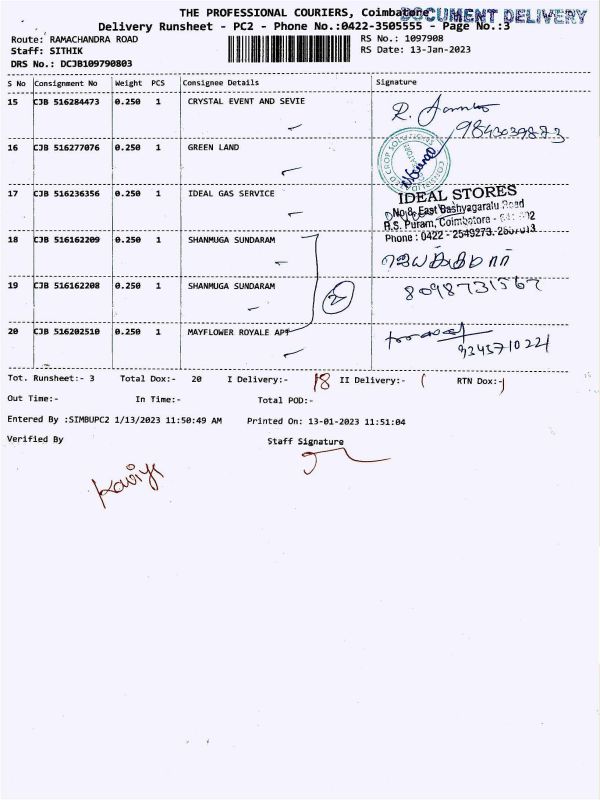 THE PROFESSIONAL COURIERS, Coimbatore
DOCUMENT DELIVERY
Delivery Runsheet - PC2 - Phone No.:0422-3505555 - Page No.:3
Route: RAMACHANDRA ROAD RS No.: 1097908
Staff: SITHIK RS Date: 13-Jan-2023
DRS No.: DCJB109790803
S No Consignment No Weight PCS Consignee Details Signature
15 CJB 516284473 0.250 1 CRYSTAL EVENT AND SEVIE
9843039873
16 CJB 516277076 0.250 1 GREEN LAND
17 CJB 516236356 0.250 1 IDEAL GAS SERVICE
IDEAL STORES
No 8, East Bashyagaralu Road
R.S. Puram, Coimbatore -
Phone : 0422 - 2549273,
18 CJB 516162209 0.250 1 SHANMUGA SUNDARAM
ஜெயக்குமார்
19 CJB 516162208 0.250 1 SHANMUGA SUNDARAM 2 8098731567
20 CJB 516202510 0.250 1 MAYFLOWER ROYALE APT
9345710221
Tot. Runsheet:- 3 Total Dox:- 20 I Delivery:- 18 II Delivery:- 1 RTN Dox:- 1
Out Time:- In Time:- Total POD:-
Entered By :SIMBUPC2 1/13/2023 11:50:49 AM Printed On: 13-01-2023 11:51:04
Verified By Staff Signature